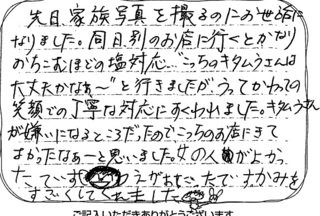 先日、家族写真を撮るのにお世話に
なりました。同日別のお店に行くとかなり
おちこむほどの塩対応…"こっちのキタムラさんは
大丈夫かなぁ〜"と行きましたが、うってかわっての
笑顔での丁寧な対応にすくわれました。キタムラさん
が嫌いになるところだったのでこっちのお店にきて
よかったなぁーと思いました。女の人がよかっ
たです
うがおむいたですかみを
すごくしてくれました
ご記入いただきありがとうございます